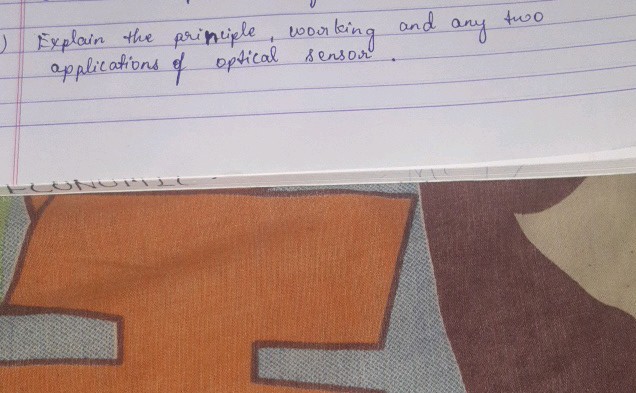 ) Explain the principle, working and any two
applications of optical sensor.